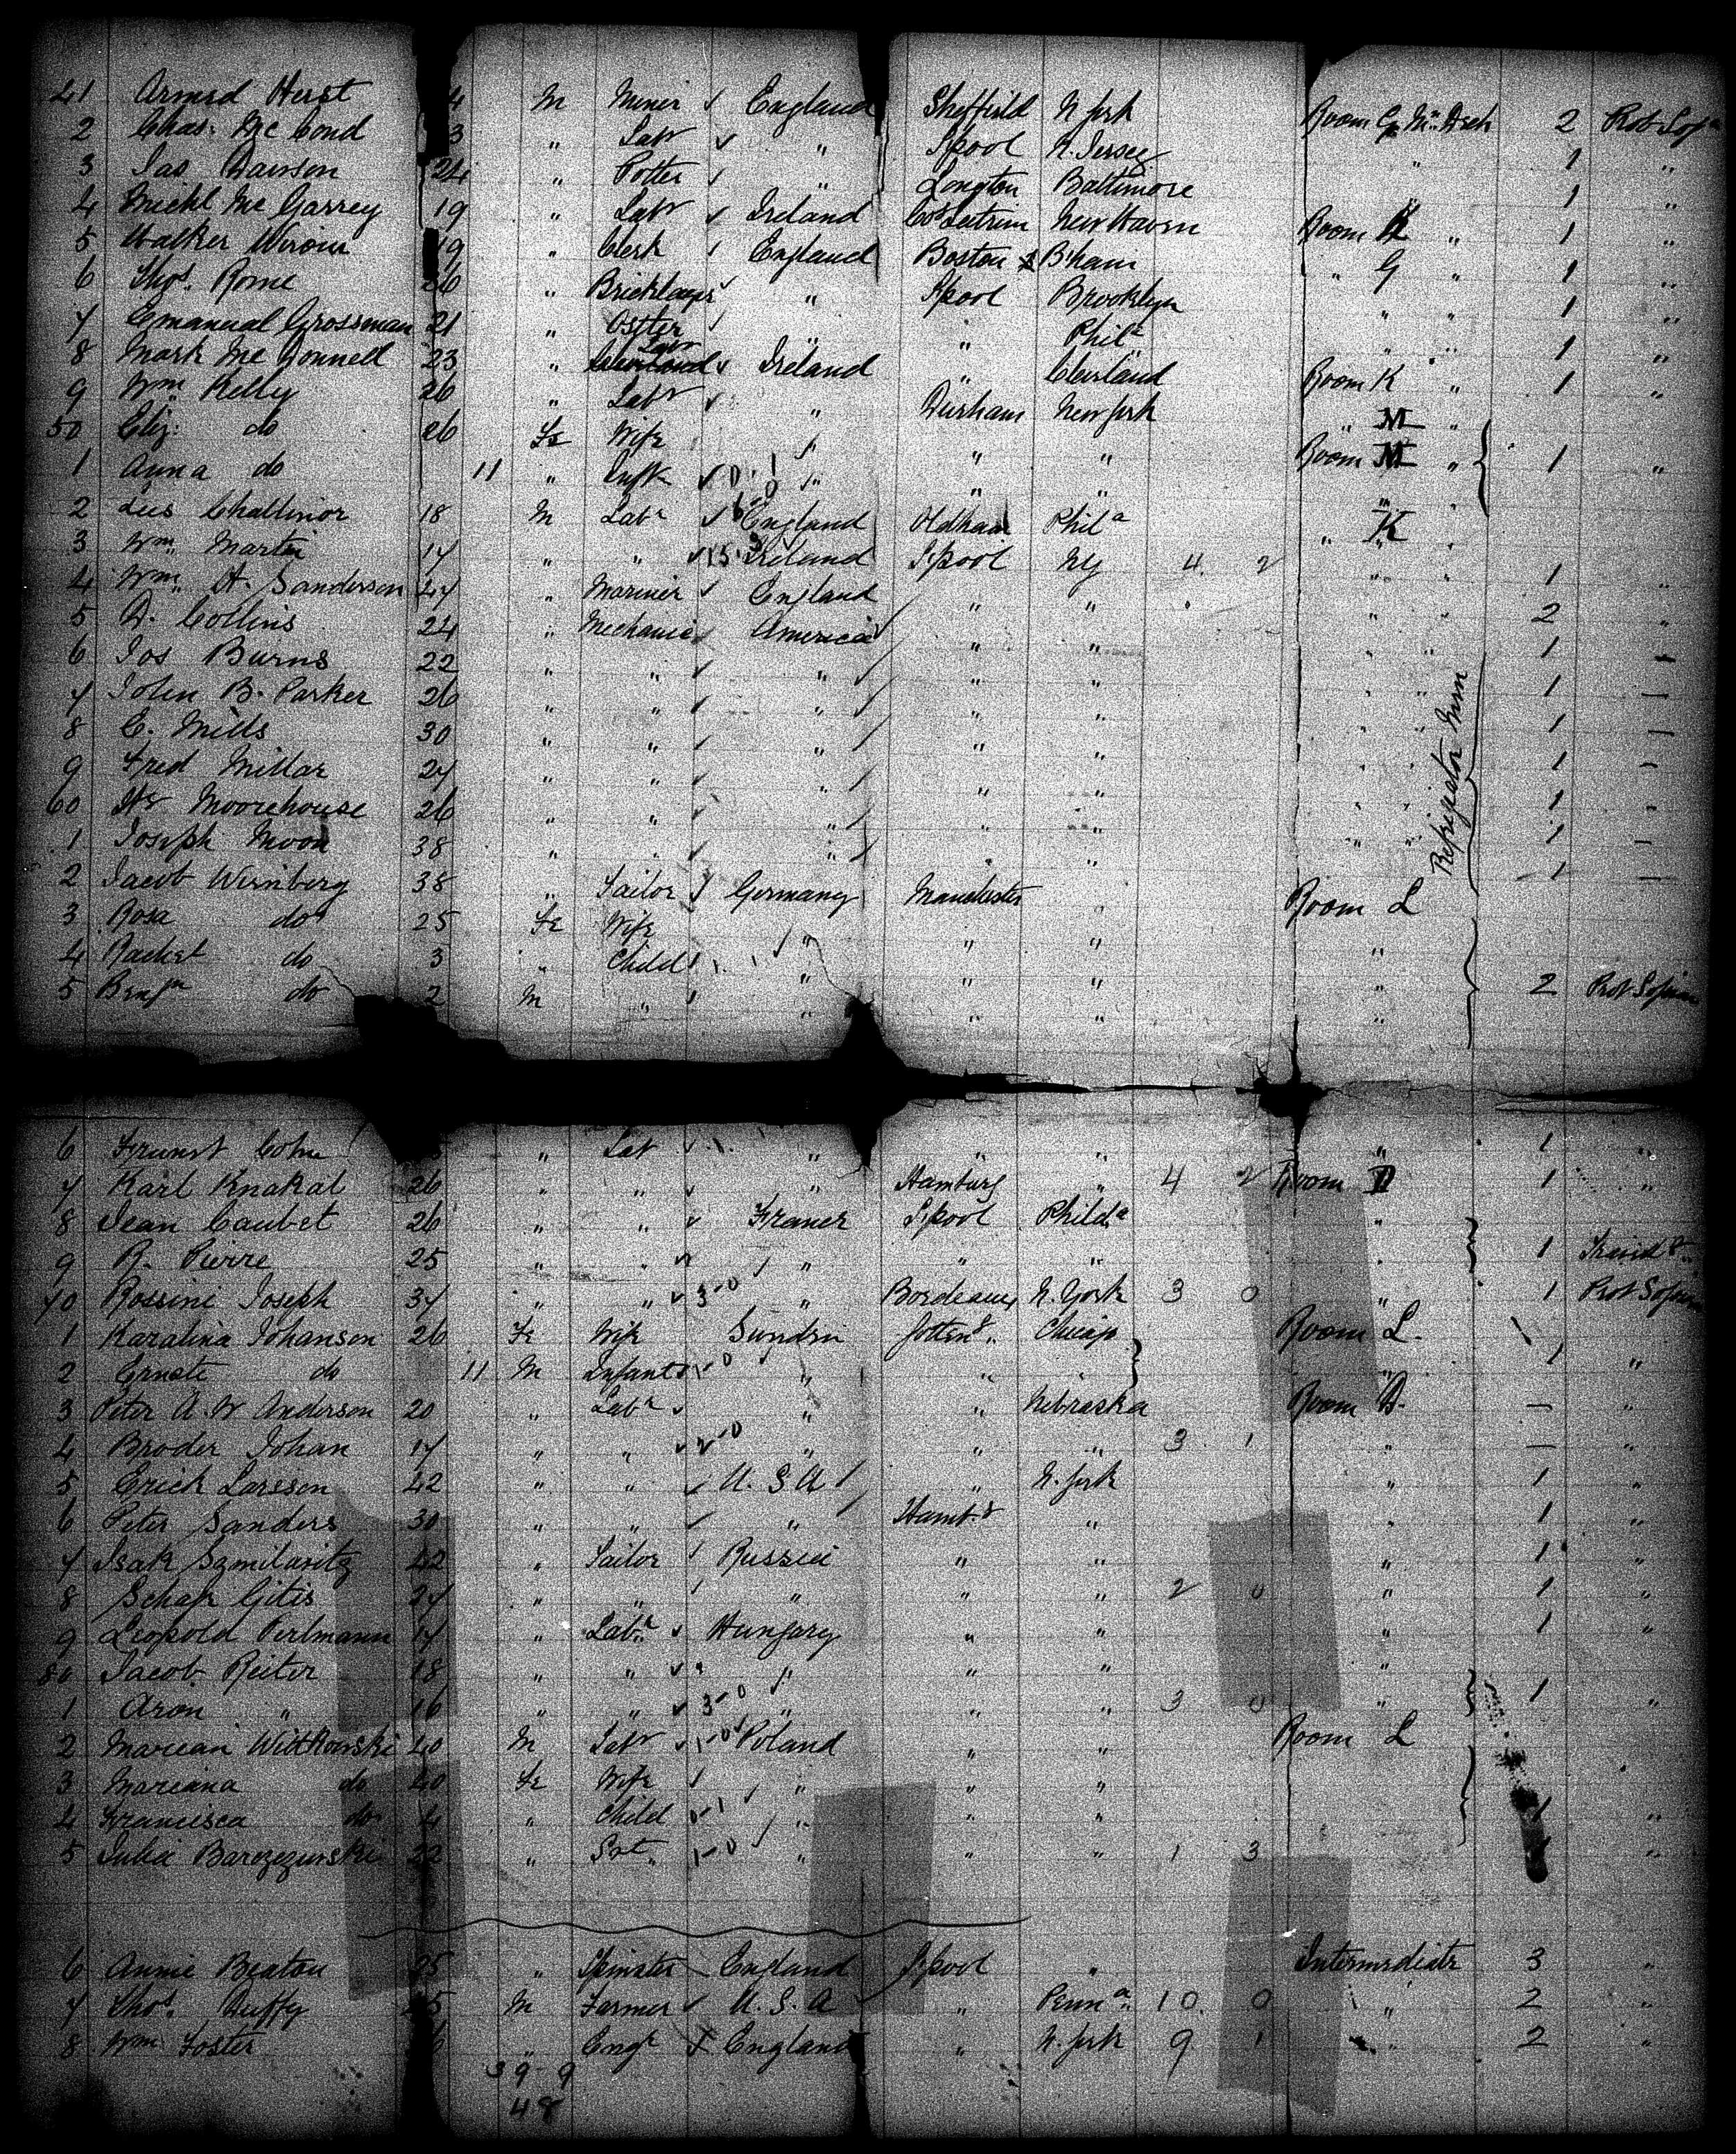 41 Armed Herst 4 M Miner England Sheffield N York Room G Mn Asch 2 Prot Sojn
2 Chas. Mc Cond 3 " Labr " L'pool N. Jersey " 1 "
3 Jas Dawson 24 " Potter " Longton Baltimore " 1 "
4 Michl Mc Garrey 19 " Labr Ireland Co Leitrim New Haven Room K " 1 "
5 Walker 19 " Clerk England Boston B'ham " G " 1 "
6 Thos. Rome 36 " Bricklayer " L'pool Brooklyn " " 1 "
7 Emanual Grossman 21 " Ostler " " Phila " " 1 "
8 Mark Mc Gonnell 23 " Labr Ireland " Cleveland Room K " 1 "
9 Wm. Kelly 26 " Labr " Durham New York " M "
50 Eliz: do 26 Fe Wife " " " Room M " 1 "
1 Anna do 11 " Inft " " " "
2 Lees Challinor 18 M Labr England Oldham Phila " K
3 Wm. Martin 17 " " Ireland L'pool NY 4 2 " " 1 "
4 Wm. H. Sanderson 27 " Mariner England " " " 2 "
5 D. Collins 24 " Mechanic America " " " 1 —
6 Jos Burns 22 " " " " " " " 1 —
7 John B. Parker 26 " " " " " " " 1 —
8 C. Mills 30 " " " " " " " 1 —
9 Fred Millar 27 " " " " " " " 1 —
60 Hy Moorehouse 26 " " " " " " " 1 —
1 Joseph Moon 38 " " " " " 1 —
Refrigerator Men
2 Jacob Wernberg 38 " Tailor Germany Manchester " Room L
3 Rosa do 25 Fe Wife " " " "
4 Rachel do 3 " Child " " " "
5 Benjn do 2 M " " " " " 2 Prot Sojn
6 Frunst Cohn " Labr " " " " 1 "
7 Karl Knakal 26 " " " Hamburg " 4 2 Room D 1 "
8 Jean Caubet 26 " " France L'pool Philda "
9 R. Pierre 25 " " " " " " 1
70 Rossini Joseph 37 " " 3-0 " Bordeaux N. York 3 0 " 1 Prot Sojn
1 Karalina Johanson 26 Fe Wife Sweden Gottenb. Chicago Room L.
2 Ernste do 11 M Infant " " " 1 "
3 Peter A. W Anderson 20 " Labr " " Nebraska Room D. — "
4 Broder Johan 17 " " 2-0 " " " 3 1 " — "
5 Erick Larsson 42 " " U. S. A " N. York " 1 "
6 Peter Sanders 30 " " " Hamb.g " " 1 "
7 Isak Szmilavitz 42 " Tailor Russia " " " 1 "
8 Schap Gitis 27 " " " " " 2 0 " 1 "
9 Leopold Perlmann 17 " Labr. Hungary " " " 1 "
80 Jacob Reiter 18 " " " " " "
1 Aron " 16 " " 3-0 " " " 3 0 " 1 "
2 Marcian Wittkowski 40 M Labr 1-0 Poland " " Room L
3 Mariana do 40 Fe Wife " " "
4 Francisca do 4 " Child " " " 1 "
5 Julia 22 " 1-0 " " " 1 3 1 "
6 Annie Beaton 25 " Spinster England L'pool " Intermediate 3 "
7 Thos. Duffy 25 M Farmer U. S. A " Penna. 10 0 " 2 "
8 Wm. Foster 6 " Engr England " N. York 9 1 " 2 "
39-9
48